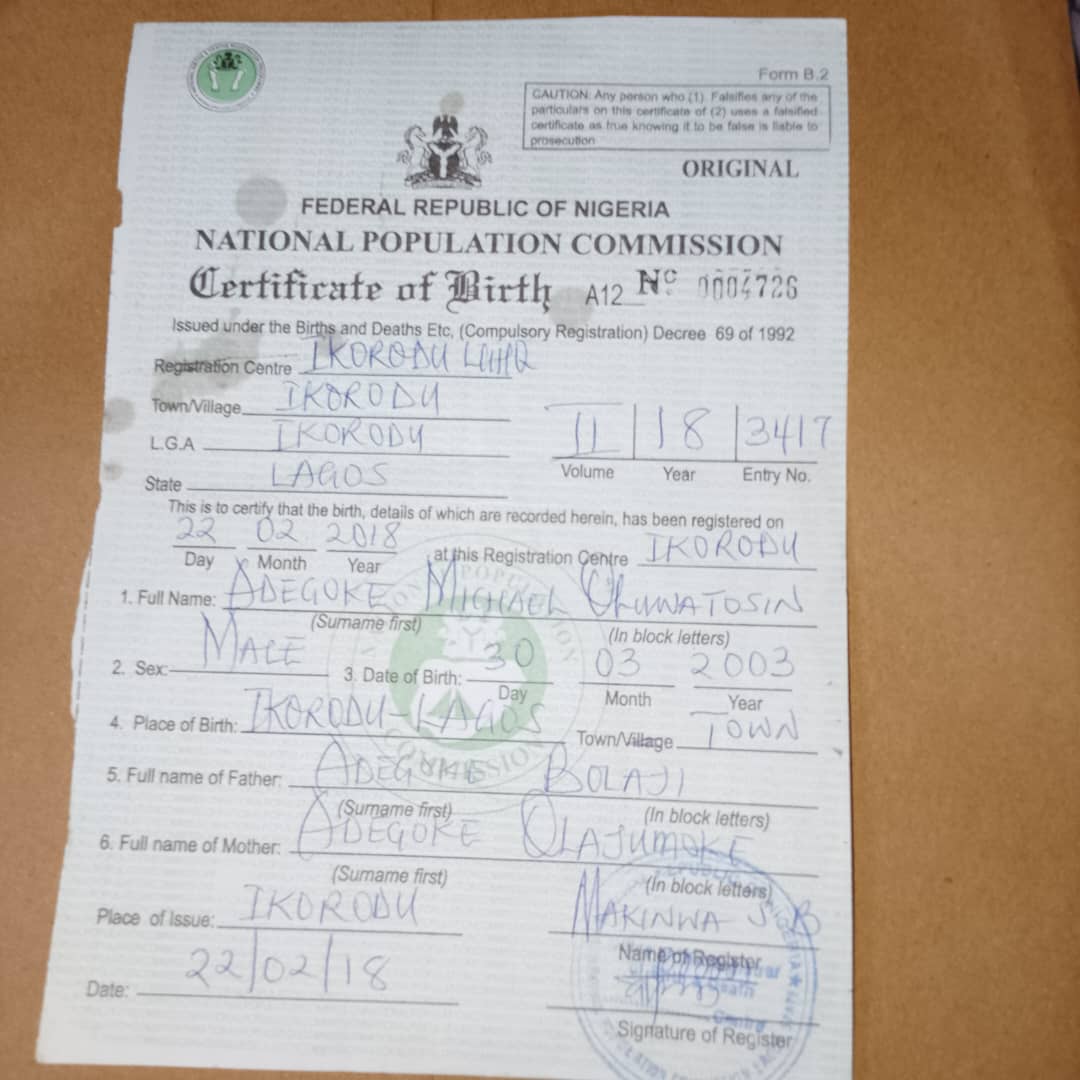 Form B.2
CAUTION: Any person who (1). Falsifies any of the
particulars on this certificate of (2) uses a falsified
certificate as true knowing it to be false is liable to
prosecution
ORIGINAL
FEDERAL REPUBLIC OF NIGERIA
NATIONAL POPULATION COMMISSION
Certificate of Birth A12 No 0004726
Issued under the Births and Deaths Etc, (Compulsory Registration) Decree 69 of 1992
Registration Centre IKORODU LGHQ
Town/Village IKORODU
L.G.A IKORODU
II 18 3417
Volume Year Entry No.
State LAGOS
This is to certify that the birth, details of which are recorded herein, has been registered on
22 02 2018 at this Registration Centre IKORODU
Day Month Year
1. Full Name: ADEGOKE MICHAEL OLUWATOSIN
(Surname first) (In block letters)
2. Sex: MALE 3. Date of Birth: 30 03 2003
Day Month Year
4. Place of Birth: IKORODU-LAGOS Town/Village TOWN
5. Full name of Father: ADEGOKE BOLAJI
(Surname first) (In block letters)
6. Full name of Mother: ADEGOKE OLAJUMOKE
(Surname first) (In block letters)
Place of Issue: IKORODU MAKINWA S. B
Name of Register
Date: 22/02/18
Signature of Register